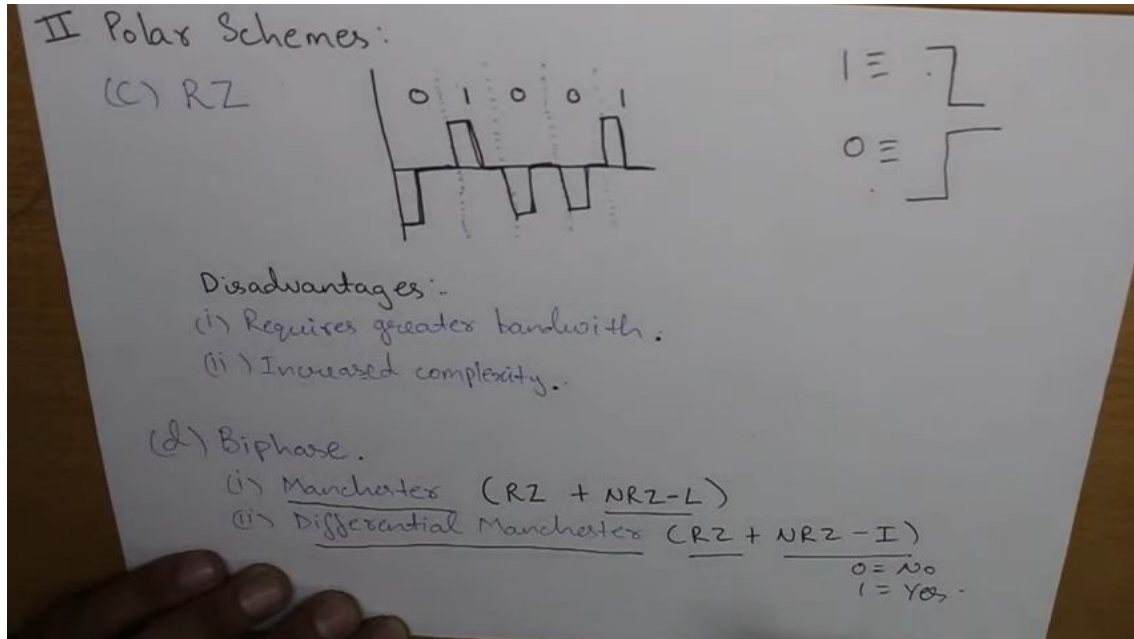 II Polar Schemes:
(C) RZ
0 1 0 0 1
1 ≡
0 ≡
Disadvantages:
(i) Requires greater bandwith.
(ii) Increased complexity.
(d) Biphase.
(i) Manchester (RZ + NRZ-L)
(ii) Differential Manchester (RZ + NRZ-I)
0 = No
1 = Yes.